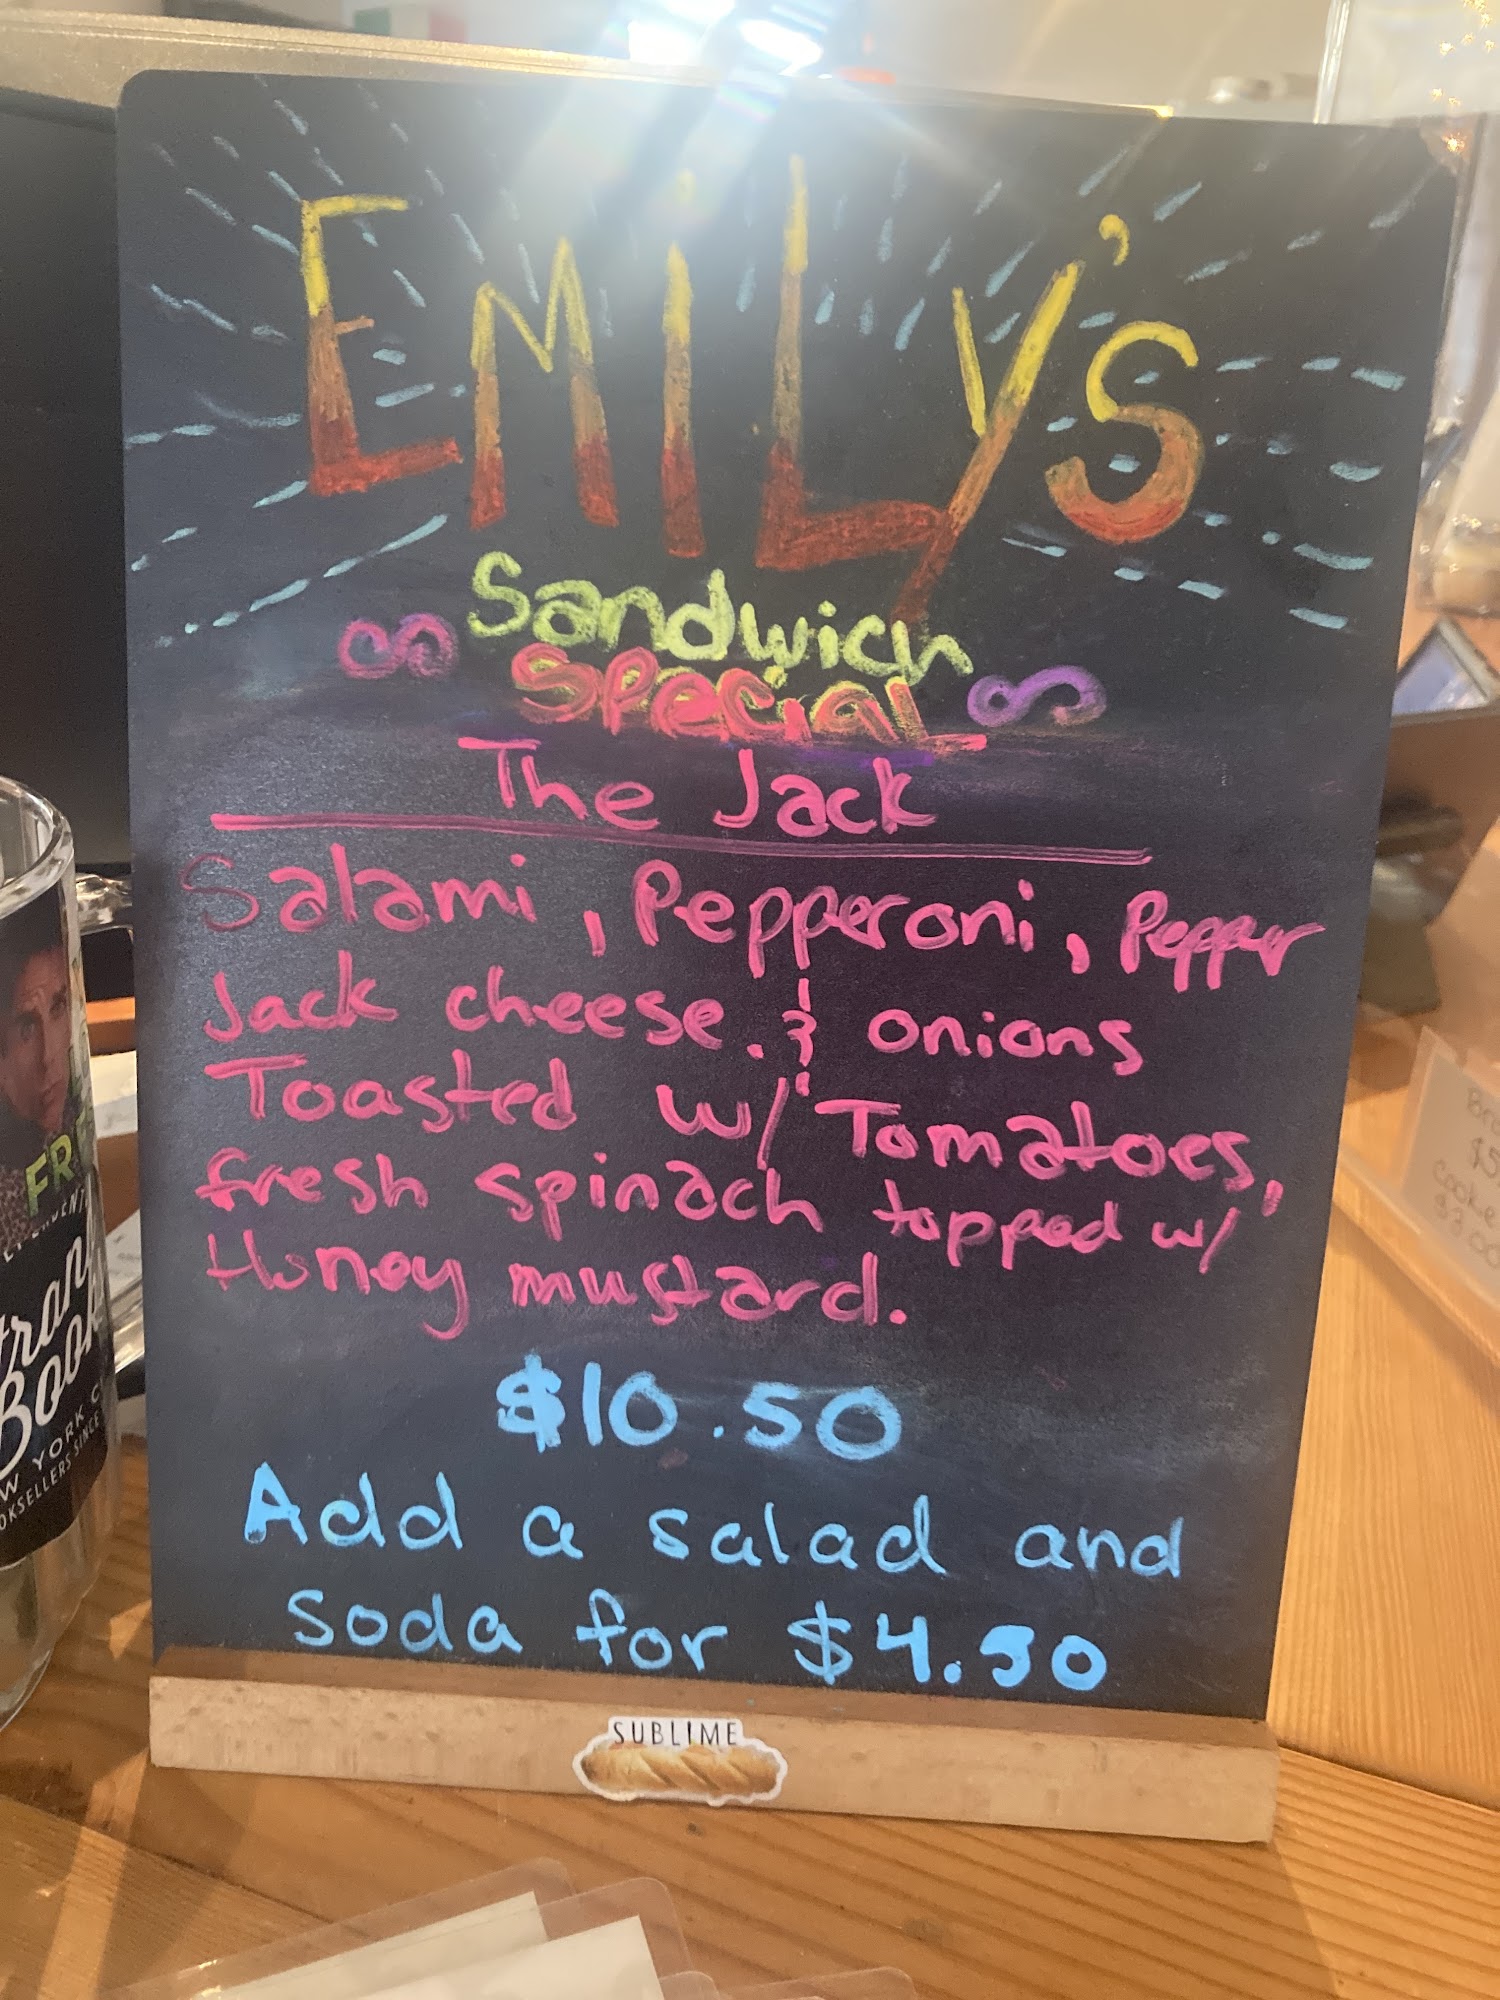 EMILY'S
Sandwich
Special
The Jack
Salami, Pepperoni, Pepper
Jack cheese. & onions
Toasted w/ Tomatoes,
fresh spinach topped w/
Honey mustard.
$10.50
Add a salad and
soda for $4.50
SUBLIME
FR
Book
W YORK C
OKSELLERS SINCE